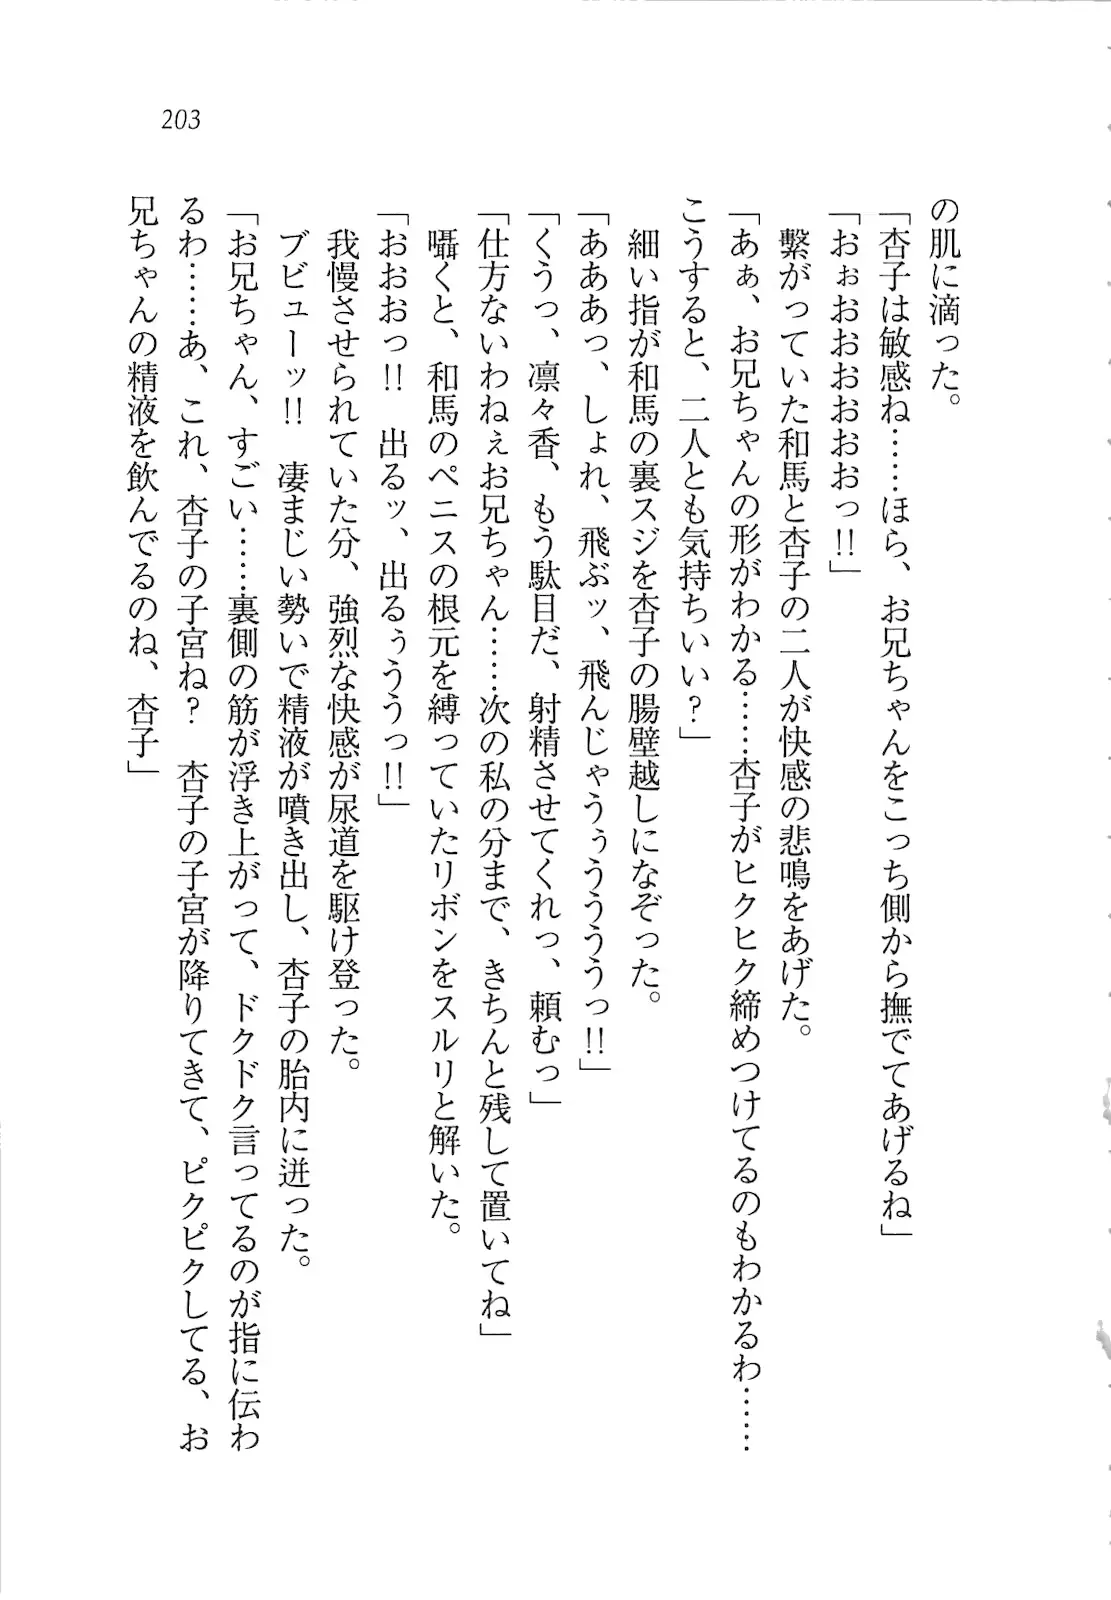 203
の肌に滴った。
「杏子は敏感ね……ほら、お兄ちゃんをこっち側から撫でてあげるね」
「おぉおおおおおっ!!」
繋がっていた和馬と杏子の二人が快感の悲鳴をあげた。
「あぁ、お兄ちゃんの形がわかる……杏子がヒクヒク締めつけてるのもわかるわ……
こうすると、二人とも気持ちいい?」
細い指が和馬の裏スジを杏子の腸壁越しになぞった。
「あああっ、しょれ、飛ぶッ、飛んじゃうぅうううっ!!」
「くうっ、凛々香、もう駄目だ、射精させてくれっ、頼むっ」
「仕方ないわねぇお兄ちゃん……次の私の分まで、きちんと残して置いてね」
囁くと、和馬のペニスの根元を縛っていたリボンをスルリと解いた。
「おおおっ!!　出るッ、出るぅううっ!!」
我慢させられていた分、強烈な快感が尿道を駆け登った。
ブビューッ!!　凄まじい勢いで精液が噴き出し、杏子の胎内に迸った。
「お兄ちゃん、すごい……裏側の筋が浮き上がって、ドクドク言ってるのが指に伝わ
るわ……あ、これ、杏子の子宮ね?　杏子の子宮が降りてきて、ピクピクしてる、お
兄ちゃんの精液を飲んでるのね、杏子」